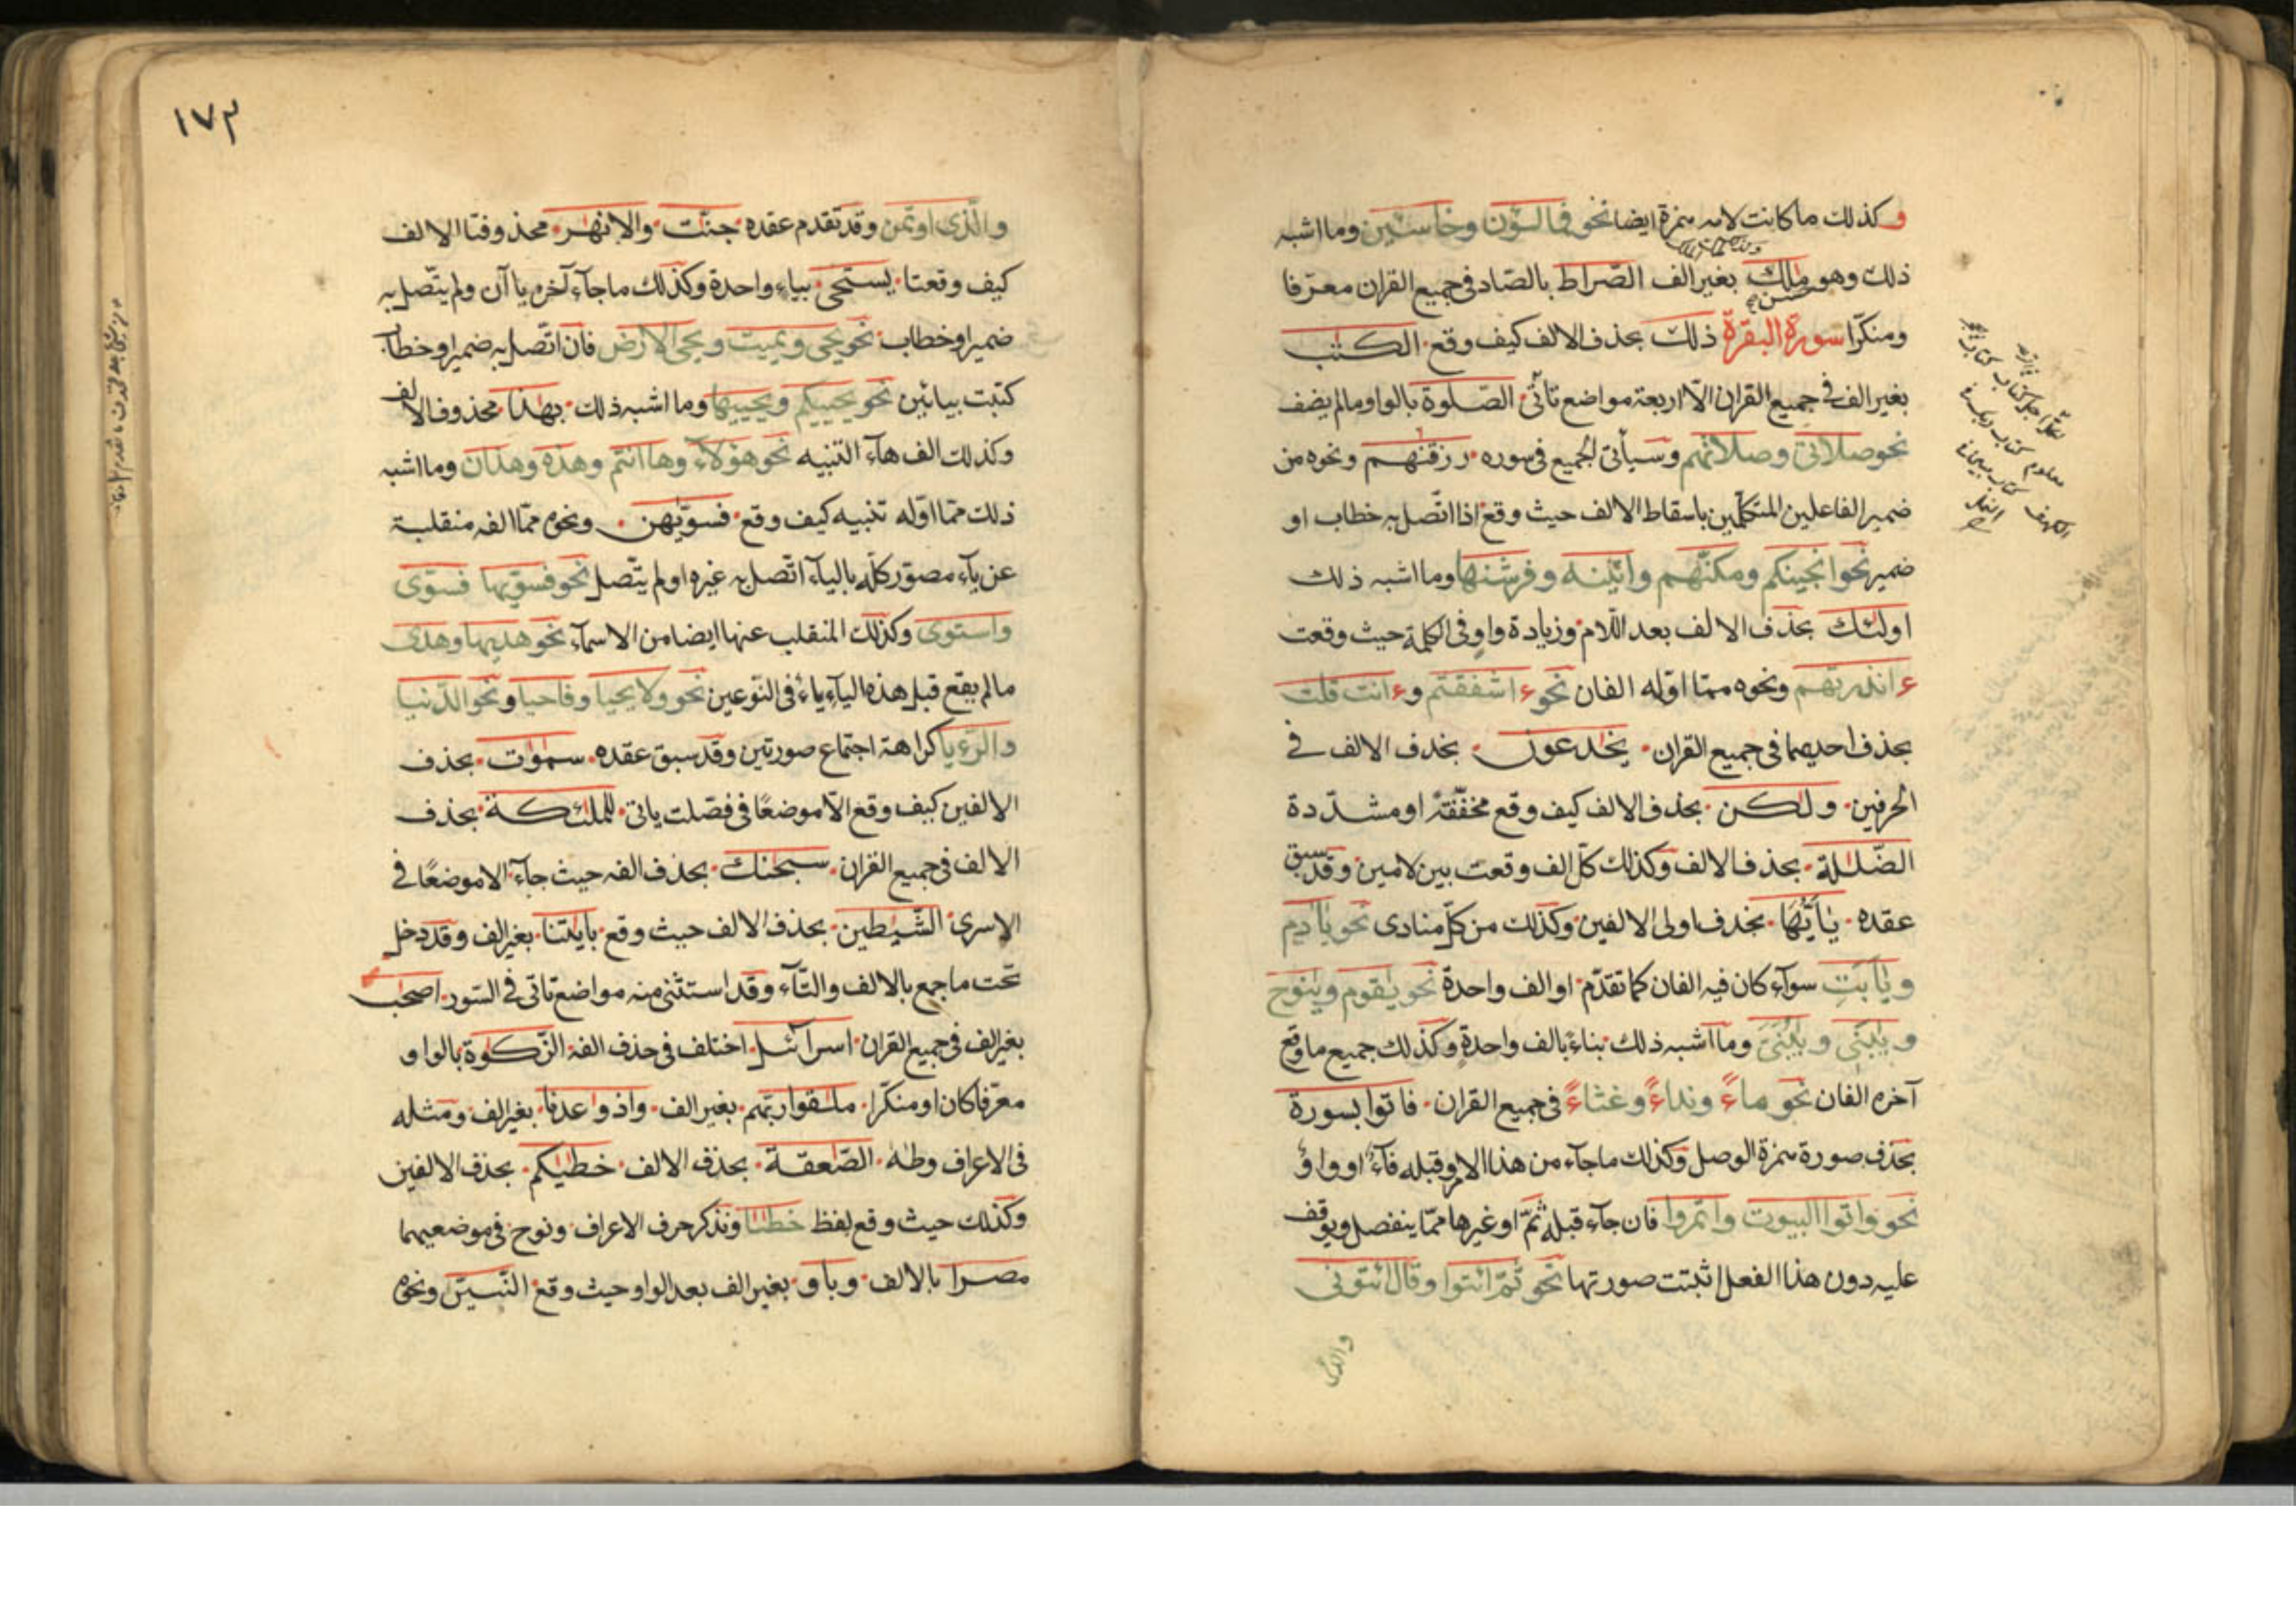 وكذلك ما كانت لامه همزة ايضا نحو فمالئون وخاسئين وما اشبه
ذلك وهو ملك بغير الف الصراط بالصاد في جميع القران معرّفا
ومنكّرا سورة البقرة ذلك بحذف الالف كيف وقع الكتب
بغير الف في جميع القران الّا اربعة مواضع تأتى الصّلوة بالواو ما لم يضف
نحو صلاتى وصلاتهم وسيأتى الجميع فى سوره رزقنهم ونحوه من
ضمير الفاعلين المتكلّمين باسقاط الالف حيث وقع اذا اتّصل به خطاب او
ضمير نحو انجينكم ومكنّهم واتينه وفرشنها وما اشبه ذلك
اولئك بحذف الالف بعد اللّام وزيادة واو فى الكلمة حيث وقعت
ءانذرتهم ونحوه ممّا اوّله الفان نحو ءاشفقتم وءانت قلت
بحذف احديهما فى جميع القران يخدعون بحذف الالف في
الحرفين ولكن بحذف الالف كيف وقع مخفّفة او مشدّدة
الضّللة بحذف الالف وكذلك كلّ الف وقعت بين لامين وقد سبق
عقده يٰأيّها بحذف اولى الالفين وكذلك من كلّ منادى نحو يٰادم
ويٰأبت سوآء كان فيه الفان كما تقدّم او الف واحدة نحو يٰقوم وينوح
ويبنى ويبنىّ وما اشبه ذلك بناءً بالف واحدة وكذلك جميع ما وقع
آخره الفان نحو ماءً ونداءً وغثاءً فى جميع القران فاتوا بسورة
بحذف صورة همزة الوصل وكذلك ما جآء من هذا الامر وقبله فآءٌ او واوٌ
نحو واتوا البيوت واتمروا فان جآء قبله ثمّ او غيرها ممّا ينفصل ويوقف
عليه دون هذا الفعل اثبتت صورتها نحو ثمّ ائتوا وقال ائتونى
والذى
١٧٣
والّذى اوتمن وقد تقدم عقده جنّت والانهر محذوفتا الالف
كيف وقعتا يستحى بياء واحدة وكذلك ما جآء آخره ياآن ولم يتّصل به
ضمير او خطاب نحو يحيى ويميت ويحي الارض فان اتّصل به ضمير او خطاب
كتبت بيائين نحو يحييكم ويحييها وما اشبه ذلك بهذا محذوف الالف
وكذلك الف هآء التنبيه نحو هؤلاء وهاانتم وهذه وهذان وما اشبه
ذلك ممّا اوّله تنبيه كيف وقع فسوّيهن ونحوه ممّا الفه منقلبة
عن يآء مصوّر كلّه باليآء اتّصل به غيره او لم يتّصل نحو فسوّيها فسوّى
واستوى وكذلك المنقلب عنها ايضا من الاسمآء نحو هديها وهدى
ما لم يقع قبل هذه اليآء ياءٌ فى النّوعين نحو ولا يحيا وفاحيا ونحو الدّنيا
والرّءيا كراهة اجتماع صورتين وقد سبق عقده سموت بحذف
الالفين كيف وقع الّا موضعًا فى فصّلت ياتى للملئكة بحذف
الالف فى جميع القران سبحنك بحذف الفه حيث جآء الا موضعًا في
الاسرى الشّيطين بحذف الالف حيث وقع بايتنا بغير الف وقد دخل
تحت ما جمع بالالف والتّآء وقد استثنى منه مواضع تاتى فى السّور اصحب
بغير الف فى جميع القران اسرآئيل اختلف فى حذف الفه الزّكوة بالواو
معرّفا كان او منكّرا ملقوا ربّهم بغير الف واذ وعدنا بغير الف ومثله
فى الاعراف وطه الصّعقة بحذف الالف خطيكم بحذف الالفين
وكذلك حيث وقع لفظ خطينا ونذكر حرف الاعراف ونوح فى موضعيهما
مصرا بالالف وباو بغير الف بعد الواو حيث وقع النّبيّن ونحوه